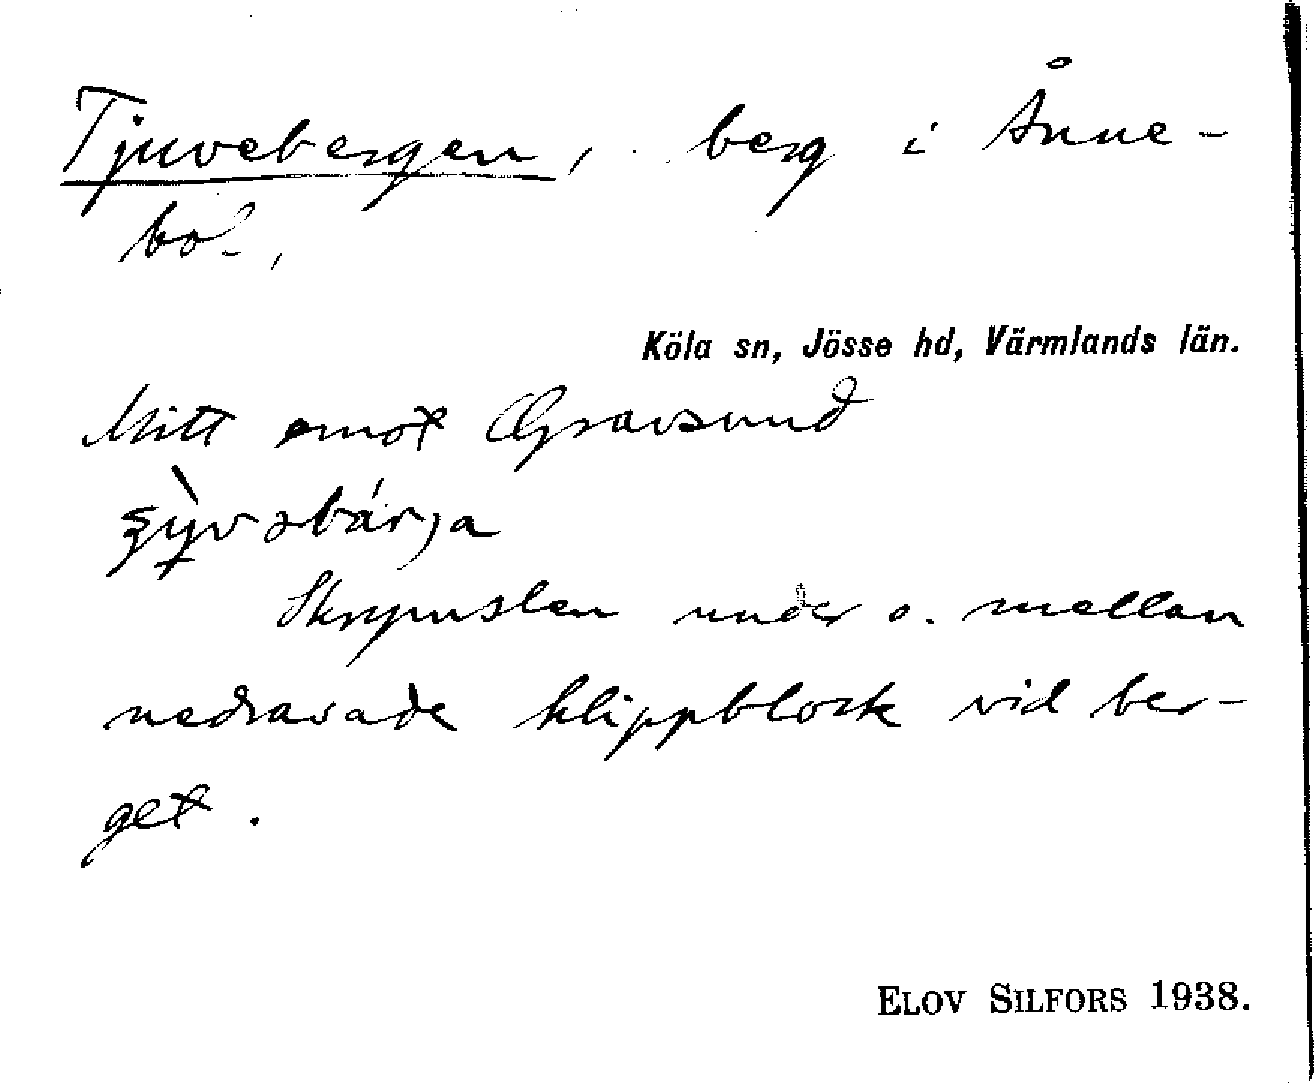 Tjuvebergen, berg i Ånne-
bol,
Köla sn, Jösse hd, Värmlands län.
Mitt emot Gravsund
Skrymslen under o. mellan
nedrasade klippblock vid ber-
get.
ELOV SILFORS 1938.